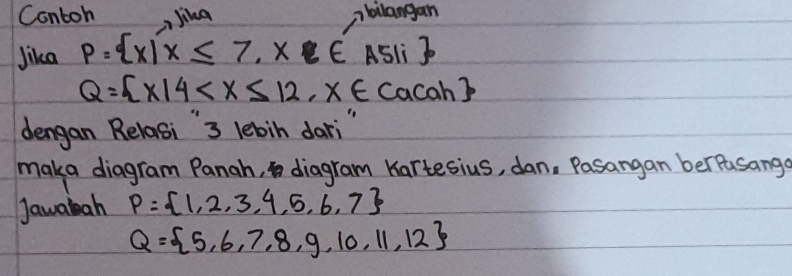 Contoh → Jika → bilangan
Jika P = {x | x ≤ 7, x ∈ Asli}
Q = {x | 4 < x ≤ 12, x ∈ Cacah}
dengan Relasi "3 lebih dari"
maka diagram Panah, diagram Kartesius, dan Pasangan berpasanga
Jawabah P = {1, 2, 3, 4, 5, 6, 7}
Q = {5, 6, 7, 8, 9, 10, 11, 12}